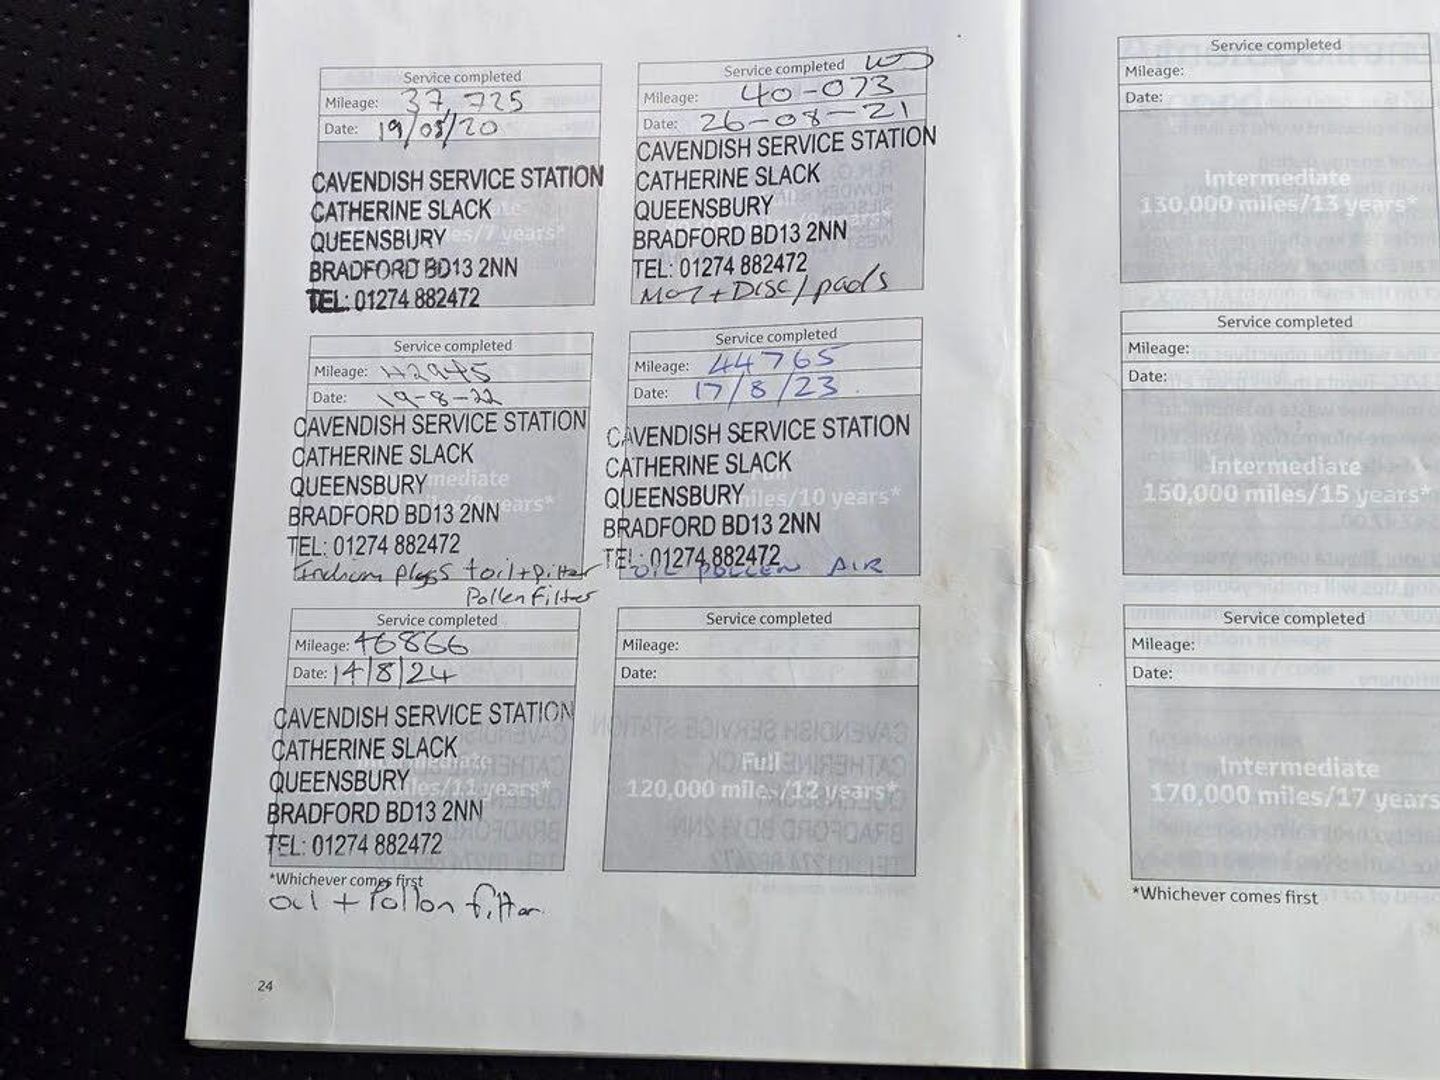 Service completed
Mileage: 37,725
Date: 19/08/20
miles/7 years*
CAVENDISH SERVICE STATION
CATHERINE SLACK
QUEENSBURY
BRADFORD BD13 2NN
TEL: 01274 882472
Service completed
Mileage: 40-073
Date: 26-08-21
CAVENDISH SERVICE STATION
CATHERINE SLACK
QUEENSBURY
BRADFORD BD13 2NN
TEL: 01274 882472
MOT + DISC/pads
Service completed
Mileage: 42945
Date: 19-8-22
CAVENDISH SERVICE STATION
CATHERINE SLACK
QUEENSBURY
BRADFORD BD13 2NN
TEL: 01274 882472
plugs + oil + filter
Pollen Filter
Service completed
Mileage: 44765
Date: 17/8/23
miles/10 years*
CAVENDISH SERVICE STATION
CATHERINE SLACK
QUEENSBURY
BRADFORD BD13 2NN
TEL: 01274 882472
OIL POLLEN AIR
Service completed
Mileage: 46866
Date: 14/8/24
Intermediate
miles/11 years*
CAVENDISH SERVICE STATION
CATHERINE SLACK
QUEENSBURY
BRADFORD BD13 2NN
TEL: 01274 882472
*Whichever comes first
oil + Pollen filter
Service completed
Mileage:
Date:
Full
120,000 miles/12 years*
24
Service completed
Mileage:
Date:
Intermediate
130,000 miles/13 years*
Service completed
Mileage:
Date:
Intermediate
150,000 miles/15 years*
Service completed
Mileage:
Date:
Intermediate
170,000 miles/17 years
*Whichever comes first